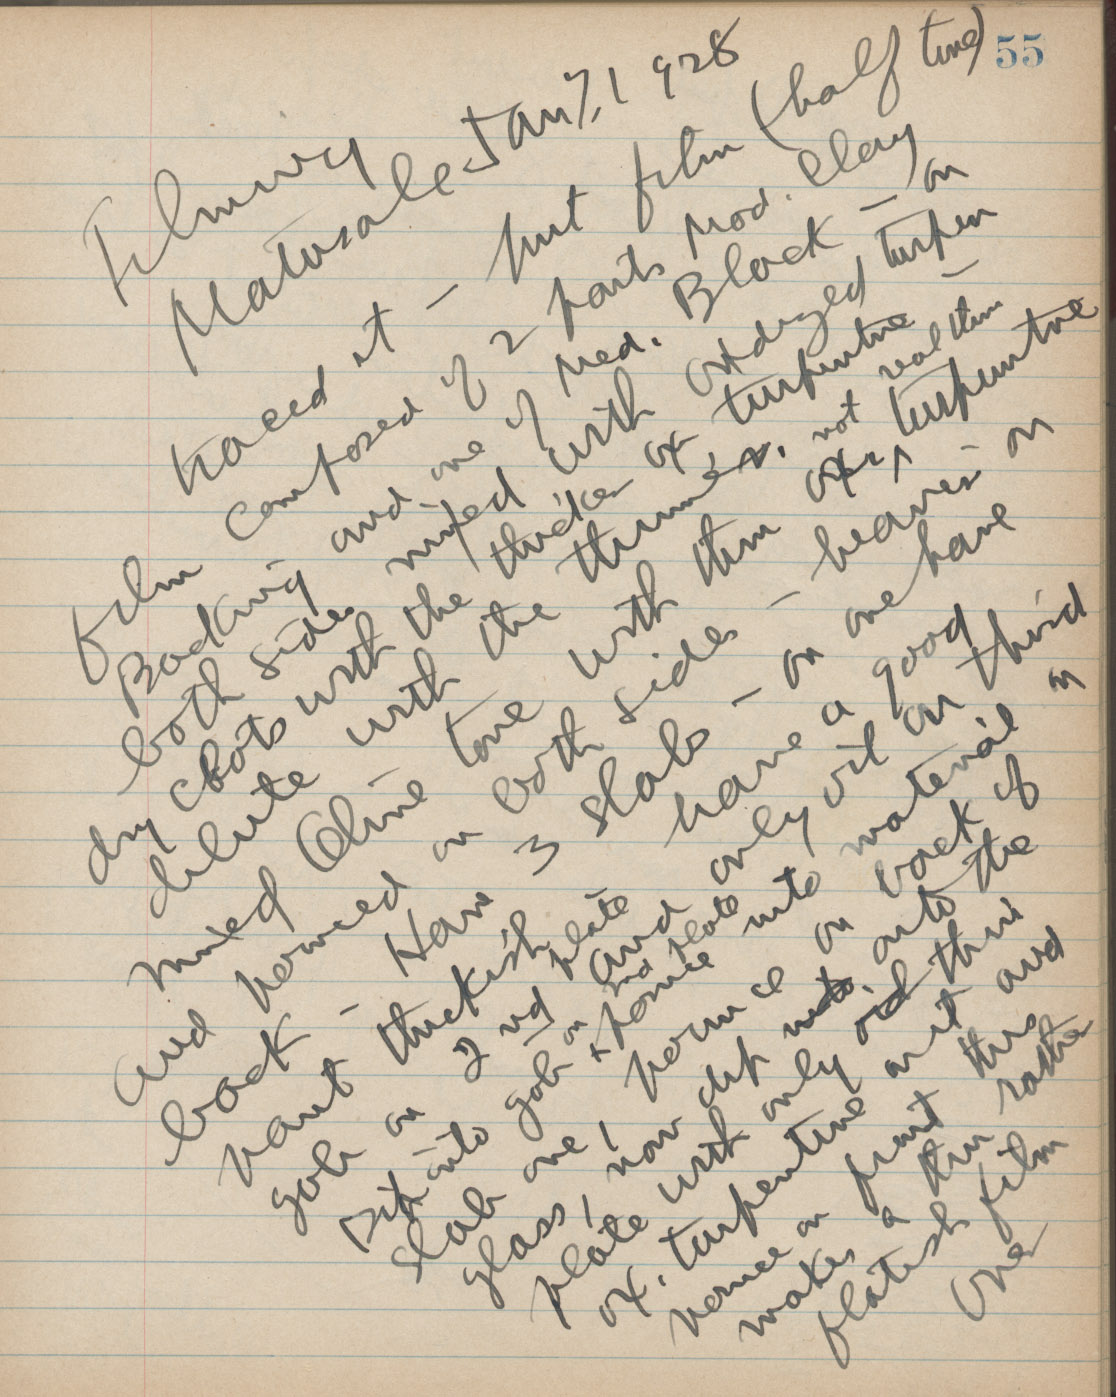 55
Filming
Matusale Jan 7, 1928
traced it – put film (half tone)
film composed of 2 parts Mod. Clay
Backing and one of Med. Black – on
both sides mixed with oxidized turpen –
dry clots with the thicker ox turpentine
dilute with the thinner, not real thin
mixed Oline tone with thin ox, turpentine
and pounced on both sides – heavier on
back – Have 3 slabs – on one have
paint thickish have a good
gob on 2nd plate and only oil on third
Dip into gob on 2nd plate + pounce into material on
slab one, pounce on back of
glass, now dip onto the
plate with only oid thin
ox. turpentine on it and
pounce on front this
makes a thin rather
flatish film
One